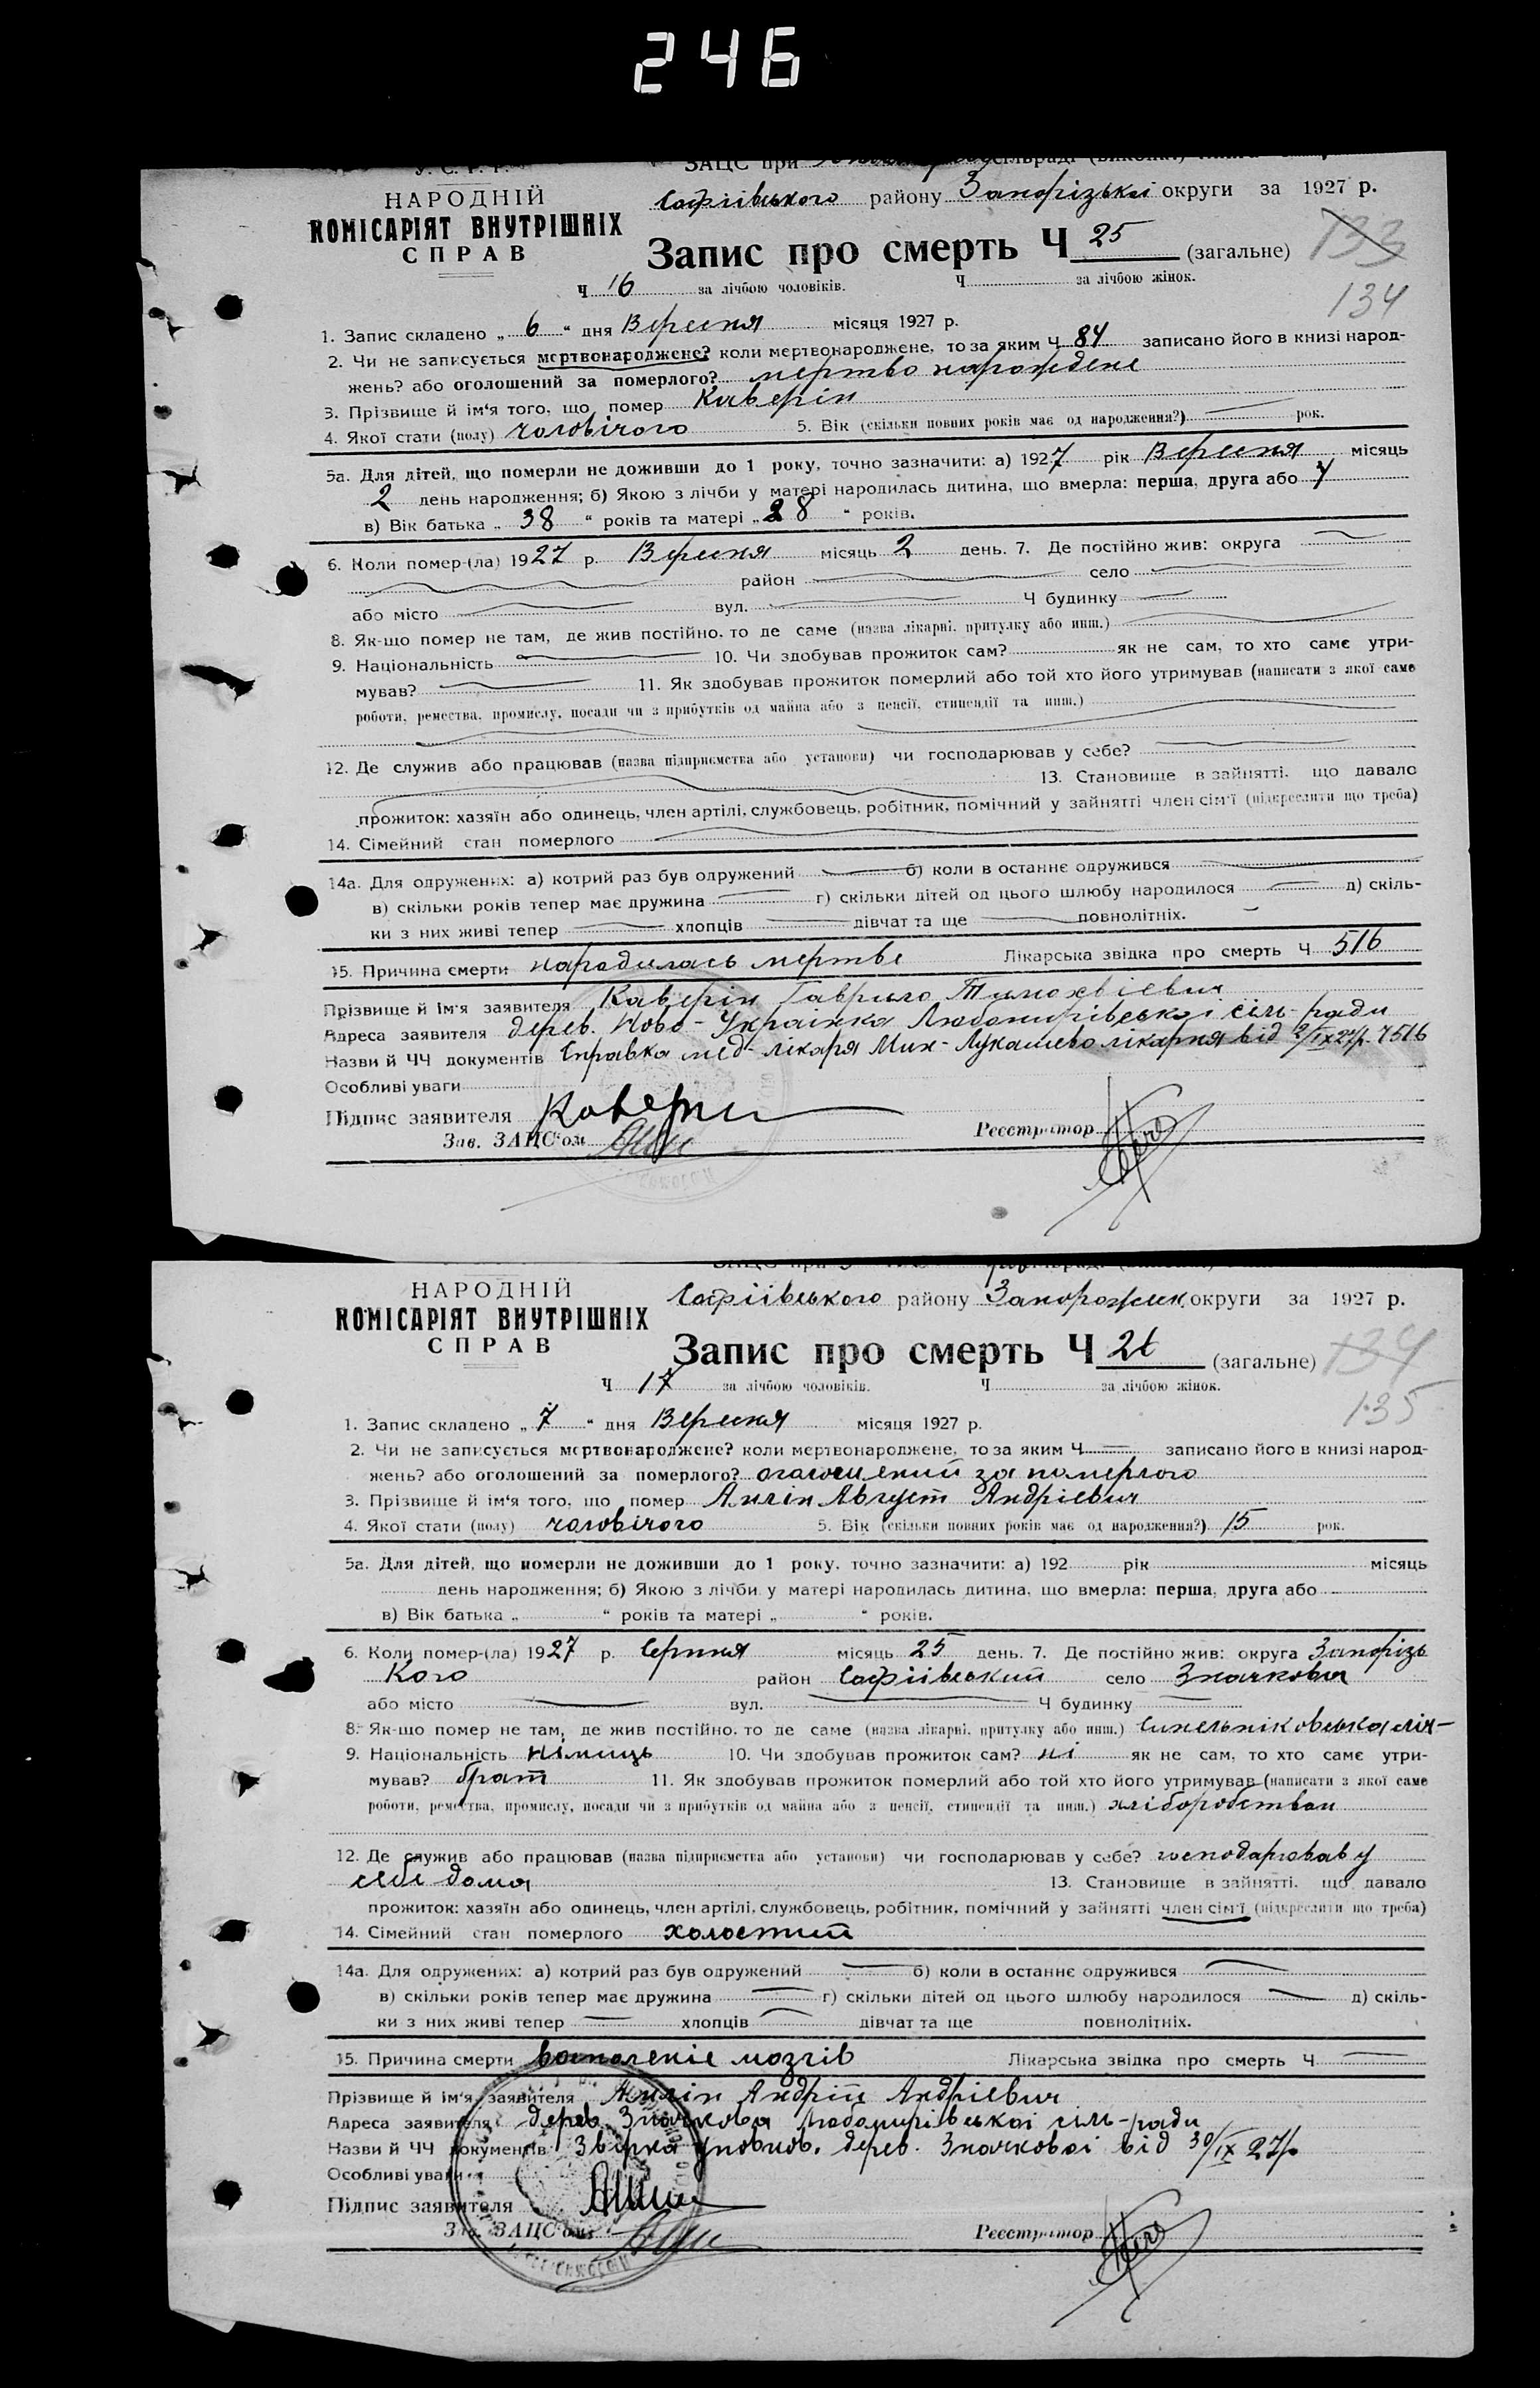 246
У. С. Р. Р.
ЗАЦС при
НАРОДНІЙ
КОМІСАРІЯТ ВНУТРІШНІХ
СПРАВ
Софіївського району Запорізької округи за 1927 р.
Запис про смерть Ч 25 (загальне) 133
134
Ч 16 за лічбою чоловіків. Ч за лічбою жінок.
1. Запис складено „ 6 “ дня Вересня місяця 1927 р.
2. Чи не записується мертвонароджене? коли мертвонароджене, то за яким Ч 84 записано його в книзі народ-
жень? або оголошений за померлого? мертво нарождене
3. Прізвище й ім‘я того, що помер Каверін
4. Якої стати (полу) чоловічого 5. Вік (скільки повних років має од народження?) рок.
5а. Для дітей, що померли не доживши до 1 року, точно зазначити: а) 1927 рік Вересня місяць
2 день народження; б) Якою з лічби у матері народилась дитина, що вмерла: перша, друга або 7
в) Вік батька „ 38 “ років та матері „ 28 “ років.
6. Коли помер-(ла) 1927 р. Вересня місяць 2 день. 7. Де постійно жив: округа
район село
або місто вул. Ч будинку
8. Як-що помер не там, де жив постійно, то де саме (назва лікарні, притулку або инш.)
9. Національність 10. Чи здобував прожиток сам? як не сам, то хто саме утри-
мував? 11. Як здобував прожиток померлий або той хто його утримував (написати з якої саме
роботи, ремества, промислу, посади чи з прибутків од майна або з пенсії, стипендії та инш.)
12. Де служив або працював (назва підприємства або установи) чи господарював у себе?
13. Становище в зайнятті, що давало
прожиток: хазяїн або одинець, член артілі, службовець, робітник, помічний у зайнятті член сім‘ї (підкреслити що треба)
14. Сімейний стан померлого
14а. Для одружених: а) котрий раз був одружений б) коли в останнє одружився
в) скільки років тепер має дружина г) скільки дітей од цього шлюбу народилося д) скіль-
ки з них живі тепер хлопців дівчат та ще повнолітніх.
15. Причина смерти народилась мертве Лікарська звідка про смерть Ч 516
Прізвище й ім‘я заявителя Каверін Гаврило Тимохвієвич
Адреса заявителя дерев. Ново-Українка Любомирівської сіль-ради
Назви й ЧЧ документів Справка мед-лікаря Мих-Лукашево лікарня від 2/IX 27 р. 516
Особливі уваги
Підпис заявителя Каверин
Зав. ЗАЦС‘ом Реєстратор
НАРОДНІЙ
КОМІСАРІЯТ ВНУТРІШНІХ
СПРАВ
Софіївського району Запорожск. округи за 1927 р.
Запис про смерть Ч 26 (загальне) 134
135
Ч 17 за лічбою чоловіків. Ч за лічбою жінок.
1. Запис складено „ 7 “ дня Вересня місяця 1927 р.
2. Чи не записується мертвонароджене? коли мертвонароджене, то за яким Ч записано його в книзі народ-
жень? або оголошений за померлого? оголошений за померлого
3. Прізвище й ім‘я того, що помер Август Андрієвич
4. Якої стати (полу) чоловічого 5. Вік (скільки повних років має од народження?) 15 рок.
5а. Для дітей, що померли не доживши до 1 року, точно зазначити: а) 192 рік місяць
день народження; б) Якою з лічби у матері народилась дитина, що вмерла: перша, друга або
в) Вік батька „ “ років та матері „ “ років.
6. Коли помер-(ла) 1927 р. Серпня місяць 25 день. 7. Де постійно жив: округа Запорізь
кого район Софіівський село Значкова
або місто вул. Ч будинку
8. Як-що помер не там, де жив постійно, то де саме (назва лікарні, притулку або инш.) Синельніковська ліч-
9. Національність німець 10. Чи здобував прожиток сам? ні як не сам, то хто саме утри-
мував? брат 11. Як здобував прожиток померлий або той хто його утримував (написати з якої саме
роботи, ремества, промислу, посади чи з прибутків од майна або з пенсії, стипендії та инш.) хліборобством
12. Де служив або працював (назва підприємства або установи) чи господарював у себе? господаровав у
себе дома 13. Становище в зайнятті, що давало
прожиток: хазяїн або одинець, член артілі, службовець, робітник, помічний у зайнятті член сім‘ї (підкреслити що треба)
14. Сімейний стан померлого холостий
14а. Для одружених: а) котрий раз був одружений б) коли в останнє одружився
в) скільки років тепер має дружина г) скільки дітей од цього шлюбу народилося д) скіль-
ки з них живі тепер хлопців дівчат та ще повнолітніх.
15. Причина смерти восполеніє мозгів Лікарська звідка про смерть Ч
Прізвище й ім‘я заявителя Андрій Андрієвич
Адреса заявителя дерев. Значкова Любомирівської сіль-ради
Назви й ЧЧ документів Звірка уповнов. дерев. Значкової від 30/IX 27 р
Особливі уваги
Підпис заявителя
Зав. ЗАЦС‘ом Реєстратор